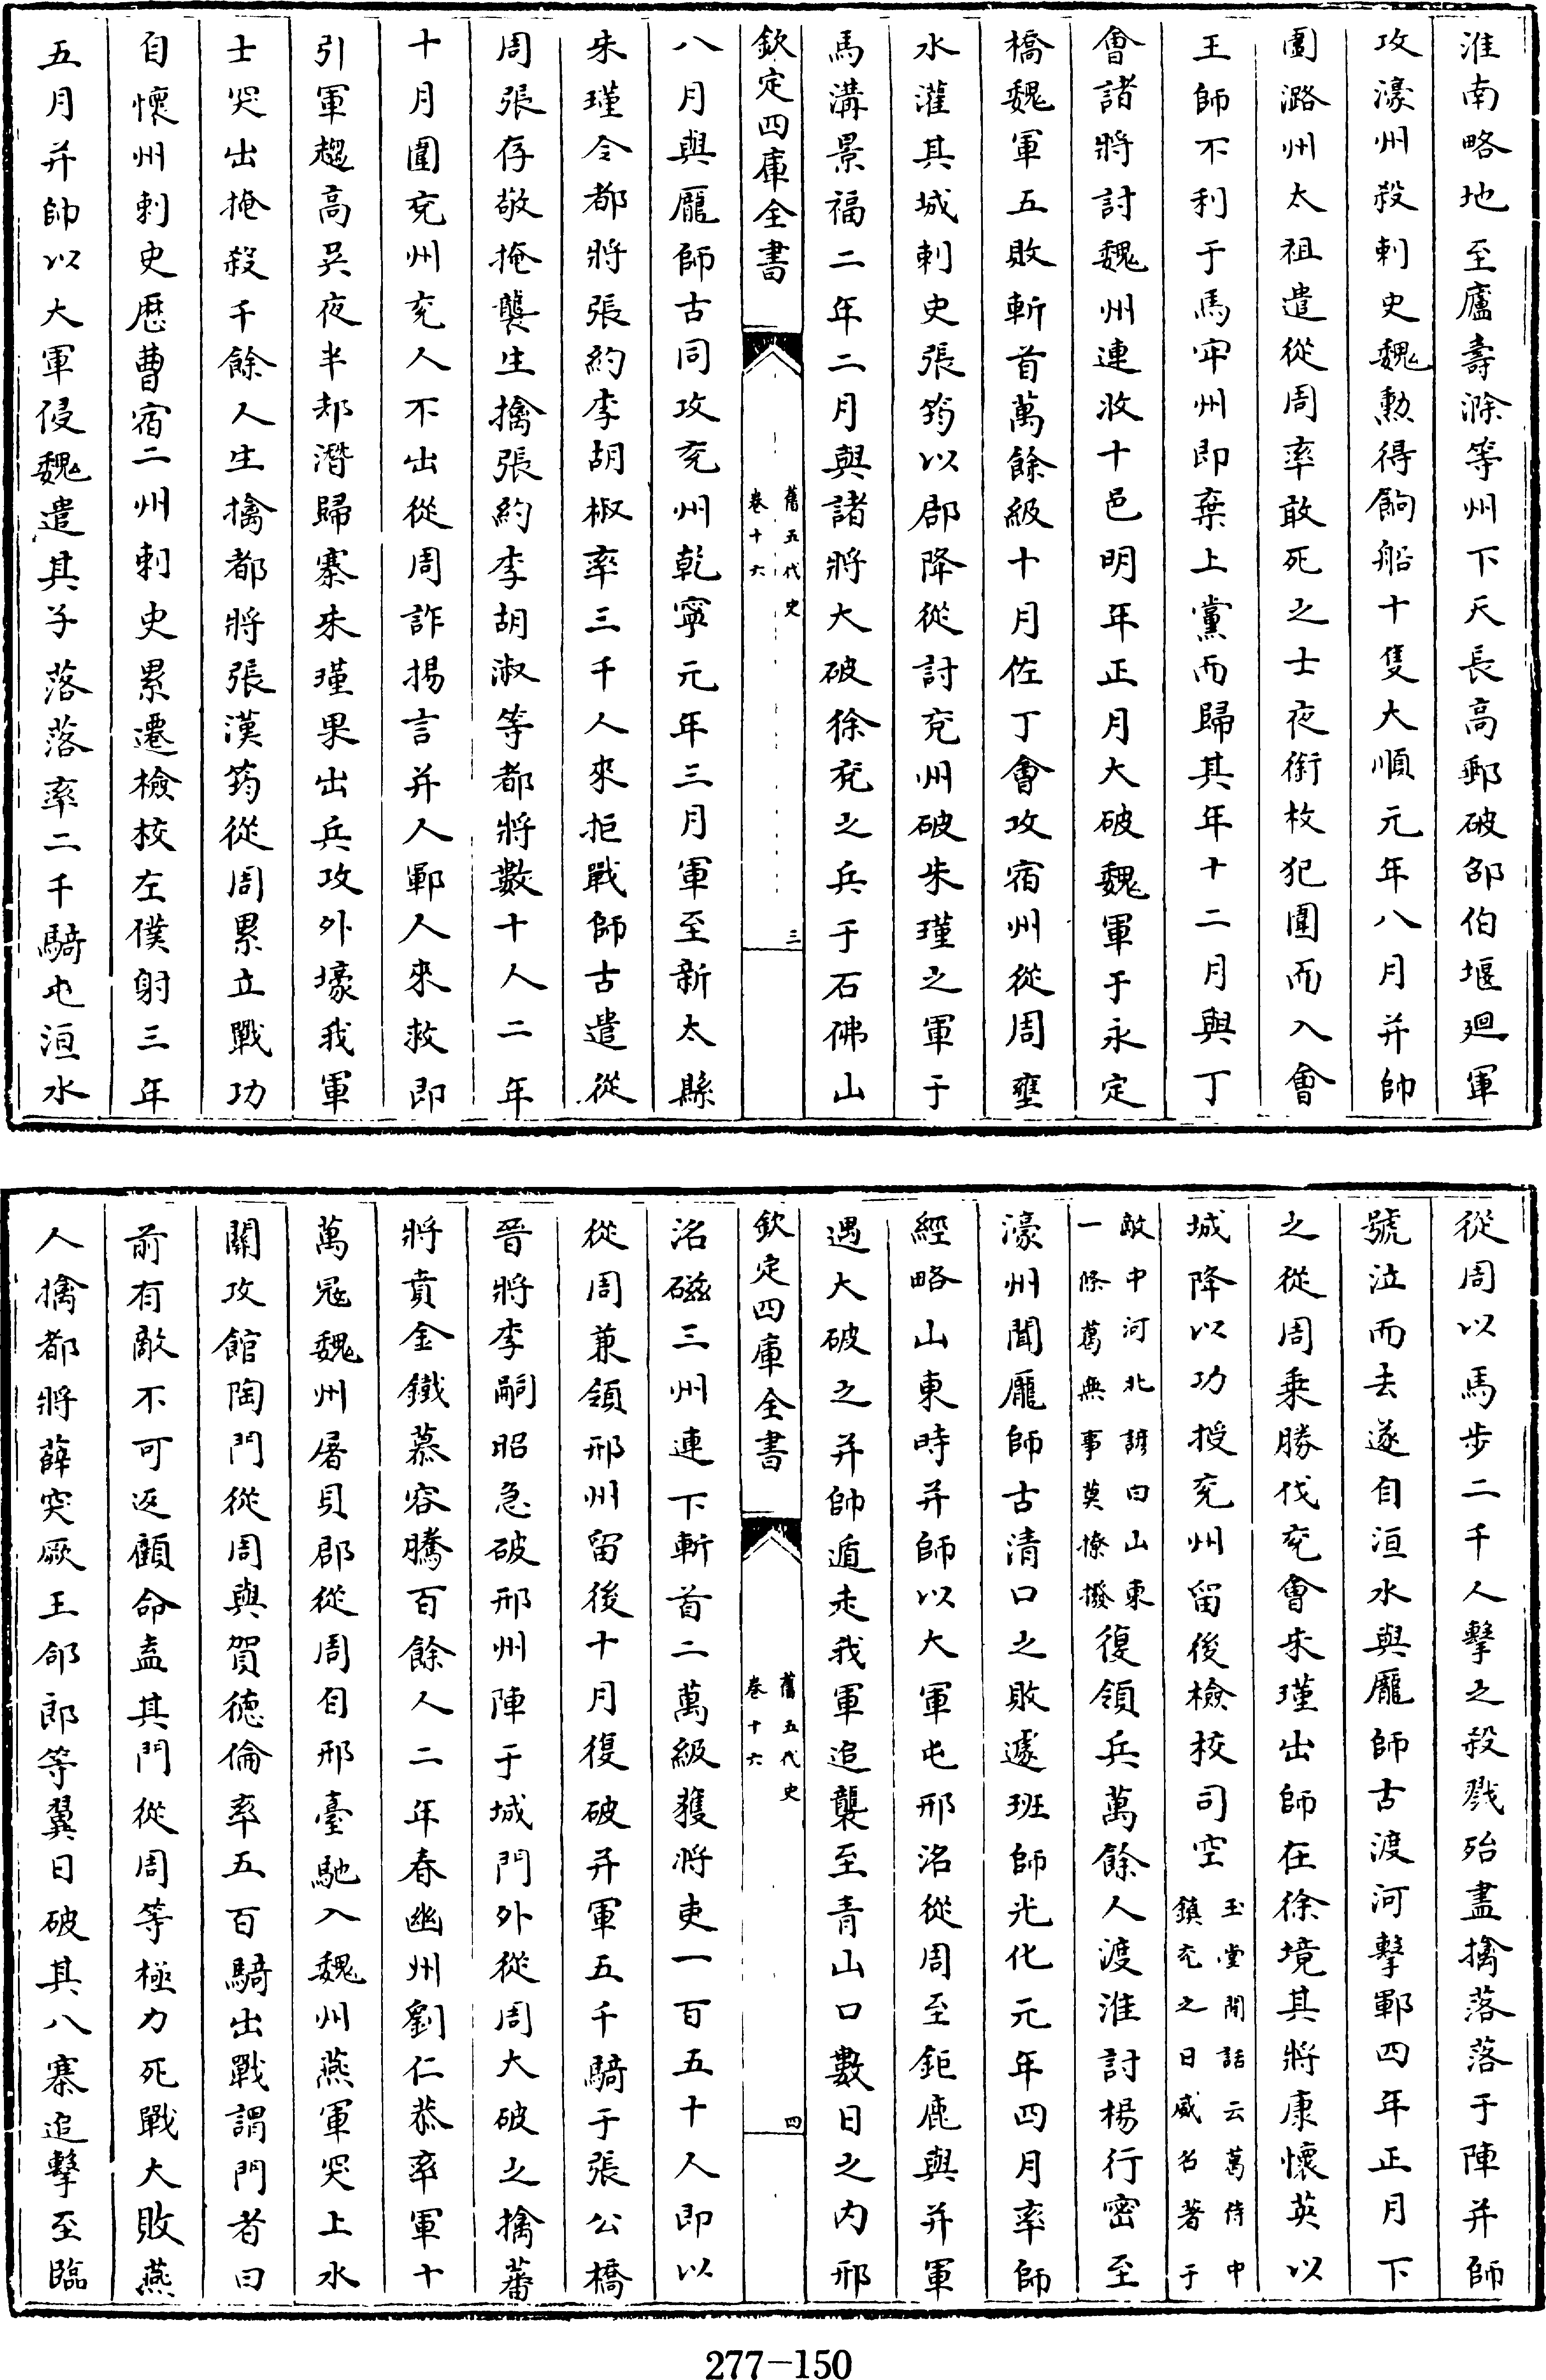 淮南略地至廬壽滁等州下天長高郵破邵伯堰廻軍
攻濠州殺刺史魏勲得餉船十隻大順元年八月并帥
圍潞州太祖遣從周率敢死之士夜銜枚犯圍而入會
王師不利于馬牢州即棄上黨而歸其年十二月與丁
會諸將討魏州連收十邑明年正月大破魏軍于永定
橋魏軍五敗斬首萬餘級十月佐丁會攻宿州從周壅
水灌其城刺史張筠以郡降從討兖州破朱瑾之軍于
馬溝景福二年二月與諸將大破徐兖之兵于石佛山
欽定四庫全書
舊五代史
卷十六
三
八月與龎師古同攻兖州乾寧元年三月軍至新太縣
朱瑾令都將張約李胡椒率三千人來拒戰師古遣從
周張存敬掩襲生擒張約李胡淑等都將數十人二年
十月圍兖州兖人不出從周詐揚言并人鄆人來救即
引軍趨高吳夜半却潛歸寨朱瑾果出兵攻外壕我軍
士突出掩殺千餘人生擒都將張漢筠從周累立戰功
自懷州刺史歴曹宿二州刺史累遷檢校左僕射三年
五月并帥以大軍侵魏遣其子落落率二千騎屯洹水
從周以馬步二千人擊之殺戮殆盡擒落落于陣并師
號泣而去遂自洹水與龎師古渡河擊鄆四年正月下
之從周乗勝伐兖會朱瑾出師在徐境其將康懷英以
城降以功授兖州留後檢校司空玉堂閒話云葛侍中
鎮兖之日威名著于
敵中河北諺曰山東
一條葛無事莫撩撥復領兵萬餘人渡淮討楊行密至
濠州聞龎師古清口之敗遽班師光化元年四月率師
經略山東時并師以大軍屯邢洺從周至鉅鹿與并軍
遇大破之并帥遁走我軍追襲至青山口數日之内邢
欽定四庫全書
舊五代史
卷十六
四
洺磁三州連下斬首二萬級獲將吏一百五十人即以
從周兼領邢州留後十月復破并軍五千騎于張公橋
晉將李嗣昭急破邢州陣于城門外從周大破之擒蕃
將賁金鐵慕容騰百餘人二年春幽州劉仁恭率軍十
萬冦魏州屠貝郡從周自邢臺馳入魏州燕軍突上水
關攻館陶門從周與賀徳倫率五百騎出戰謂門者曰
前有敵不可返顧命盍其門從周等極力死戰大敗燕
人擒都將薛突厥王郃郎等翼日破其八寨追擊至臨
277-150